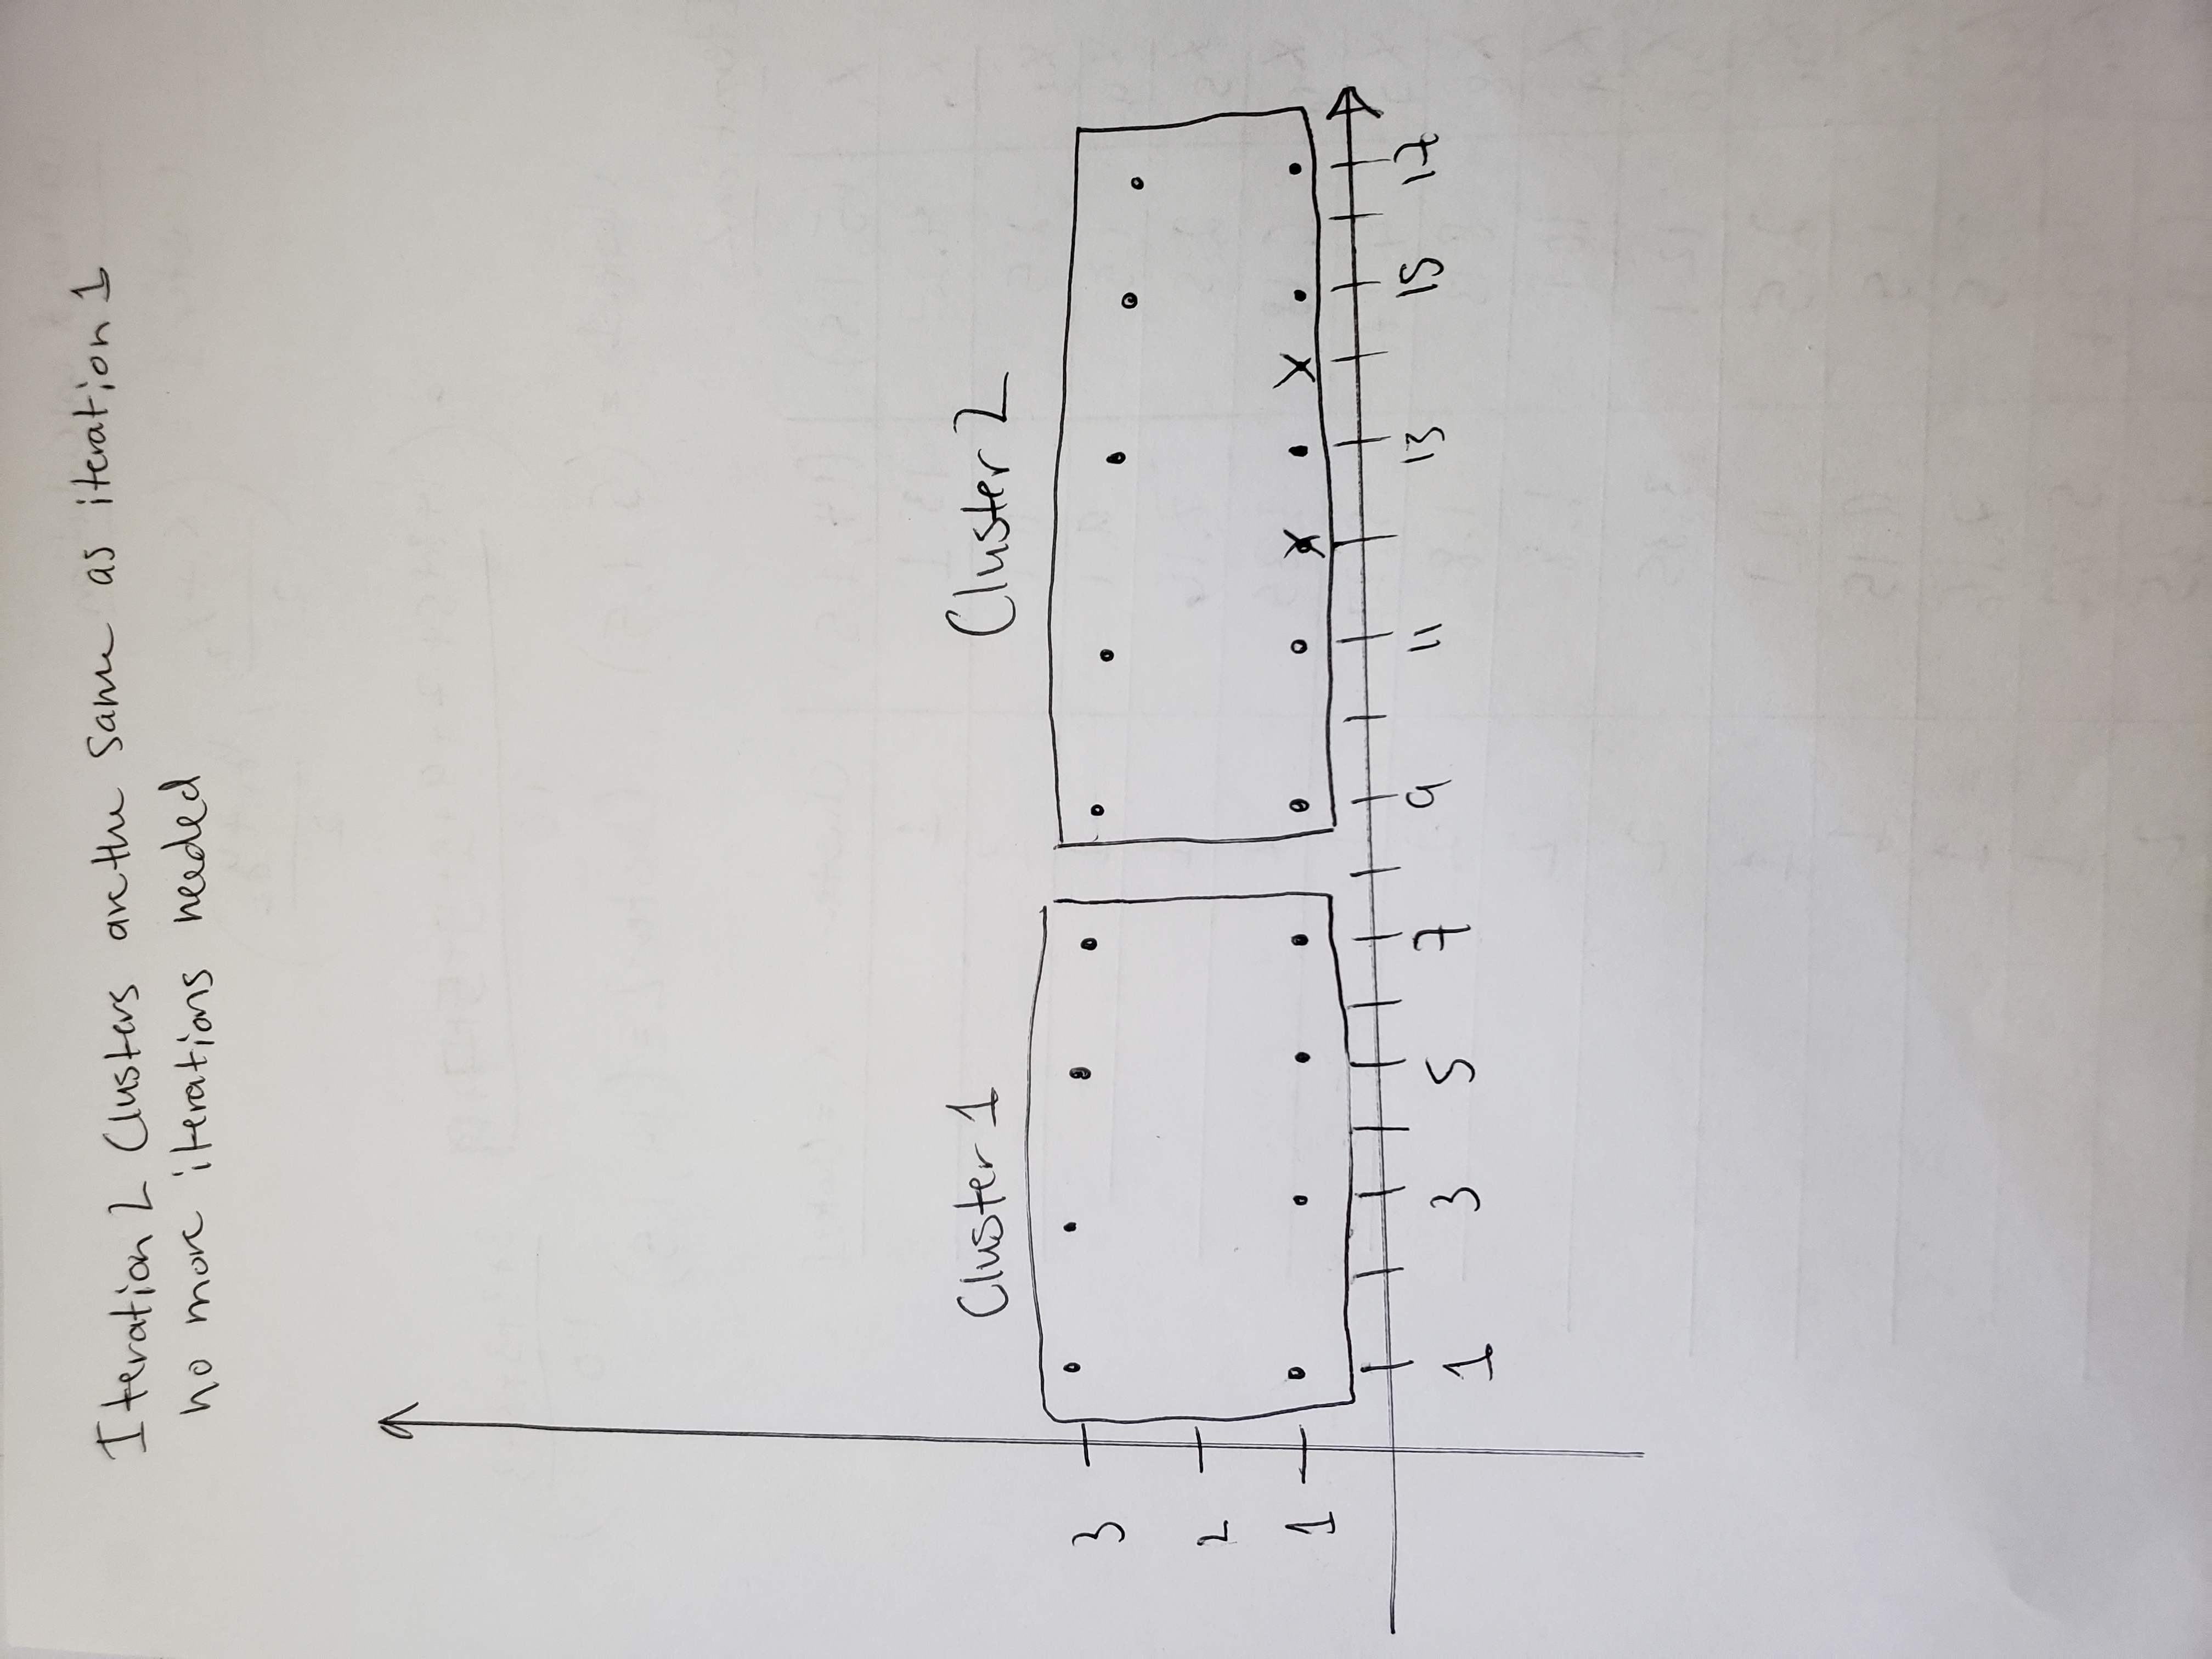 Iteration 2 Clusters are the same as iteration 1
no more iterations needed
Cluster 1
Cluster 2
3
2
1
1 3 5 7 9 11 13 15 17